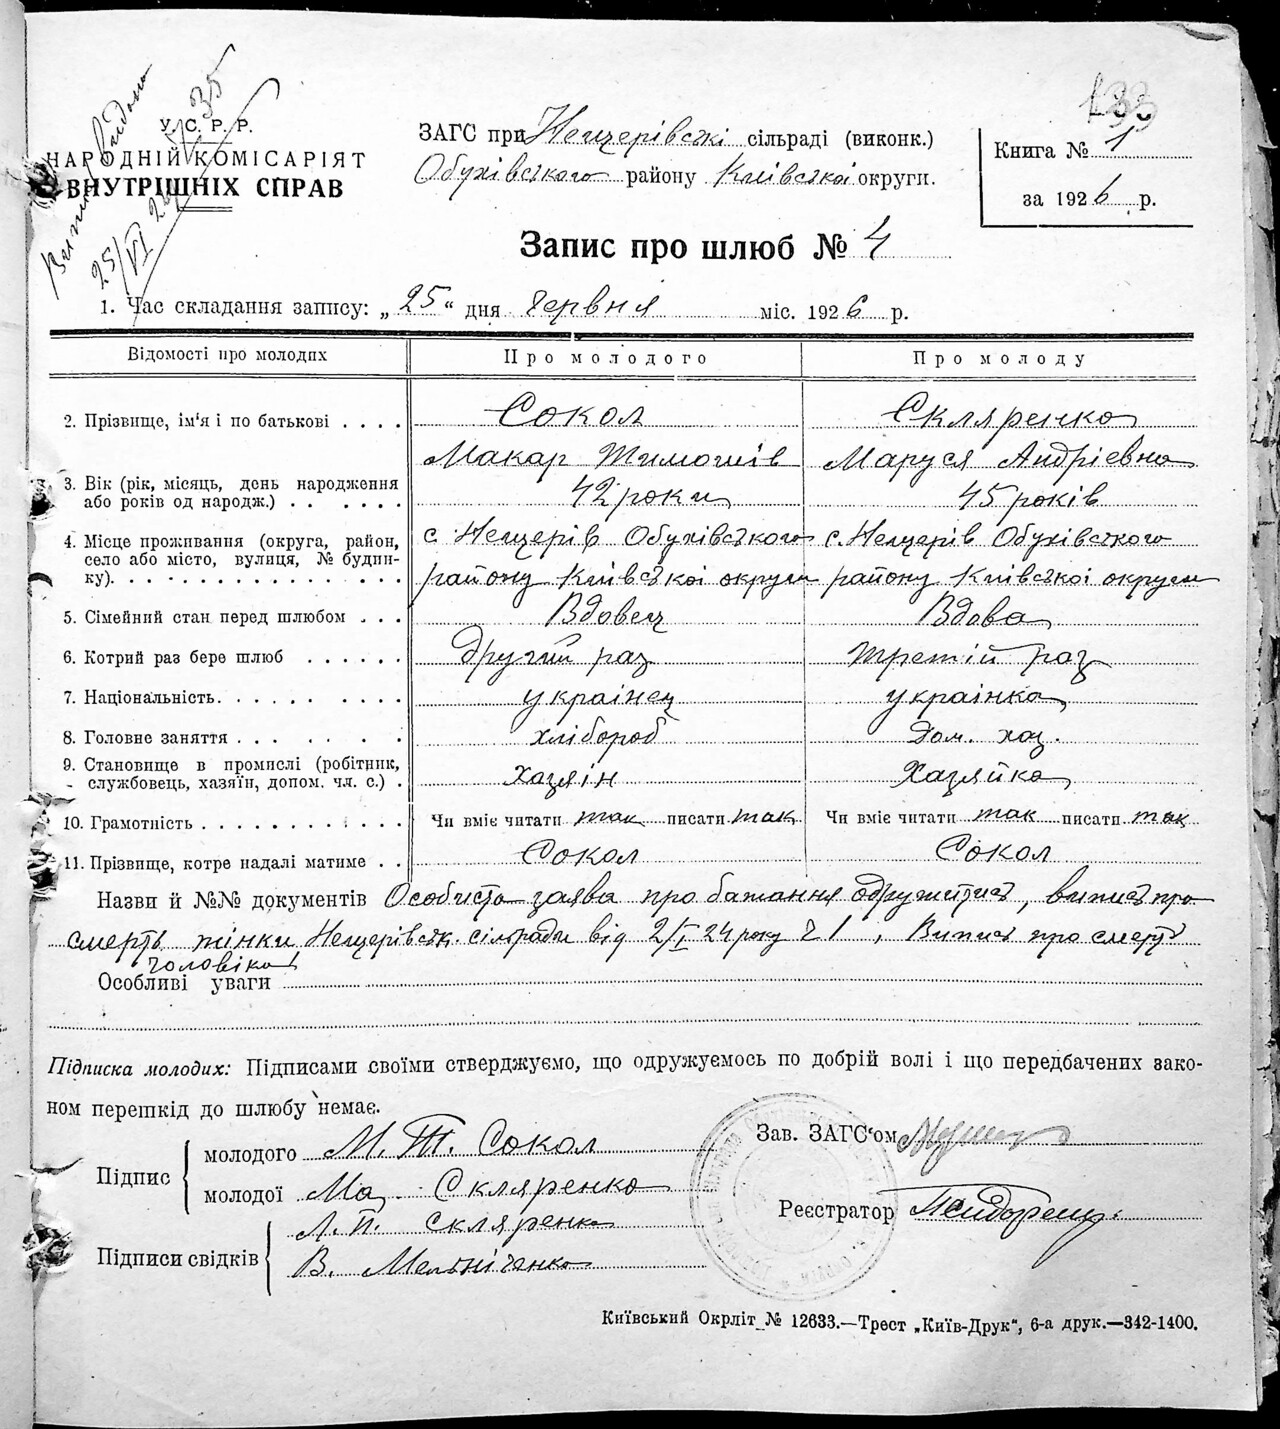 133
Випис видано
25/VI 26 № 35
У. С. Р. Р.
НАРОДНІЙ КОМІСАРІЯТ
ВНУТРІШНІХ СПРАВ
ЗАГС при Нещерівські сільраді (виконк.)
Обухівського району Київської округи.
Книга № 1
за 1926 р.
Запис про шлюб № 4
1. Час складання запису: „25“ дня червня міс. 1926 р.
Відомості про молодих Про молодого Про молоду
2. Прізвище, ім'я і по батькові . . . . Сокол Скляренко
Макар Тимошів Маруся Андріевна
3. Вік (рік, місяць, день народження
або років од народж.) . . . . . . 42 роки 45 років
4. Місце проживання (округа, район, с. Нещерів Обухівського с. Нещерів Обухівського
село або місто, вулиця, № будин-
ку). . . . . . . . . . . . . . . району Київської округи району Київської округи
5. Сімейний стан перед шлюбом . . . Вдовец Вдова
6. Котрий раз бере шлюб . . . . . . Другий раз третій раз
7. Національність. . . . . . . . . . українец українка
8. Головне заняття . . . . . . . . хлібороб Дом. хаз.
9. Становище в промислі (робітник,
службовець, хазяїн, допом. чл. с.) . хазяін Хазяйка
10. Грамотність . . . . . . . . . . . . Чи вміє читати так писати так Чи вміє читати так писати так
11. Прізвище, котре надалі матиме . . Сокол Сокол
Назви й №№ документів Особиста заява про бажання одружитись, випис про
смерть жінки Нещерівськ. сільради від 2/I 24 року ч 1, Випис про смерть
чоловіка
Особливі уваги
Підписка молодих: Підписами своїми стверджуємо, що одружуємось по добрій волі і що передбачених зако-
ном перешкід до шлюбу немає.
Підпис молодого М. Т. Сокол
молодої Ма Скляренко
Підписи свідків Л. П. Скляренко
В. Мельніченко
Зав. ЗАГС'ом
Реєстратор
Київський Окрліт № 12633.—Трест „Київ-Друк“, 6-а друк.—342-1400.